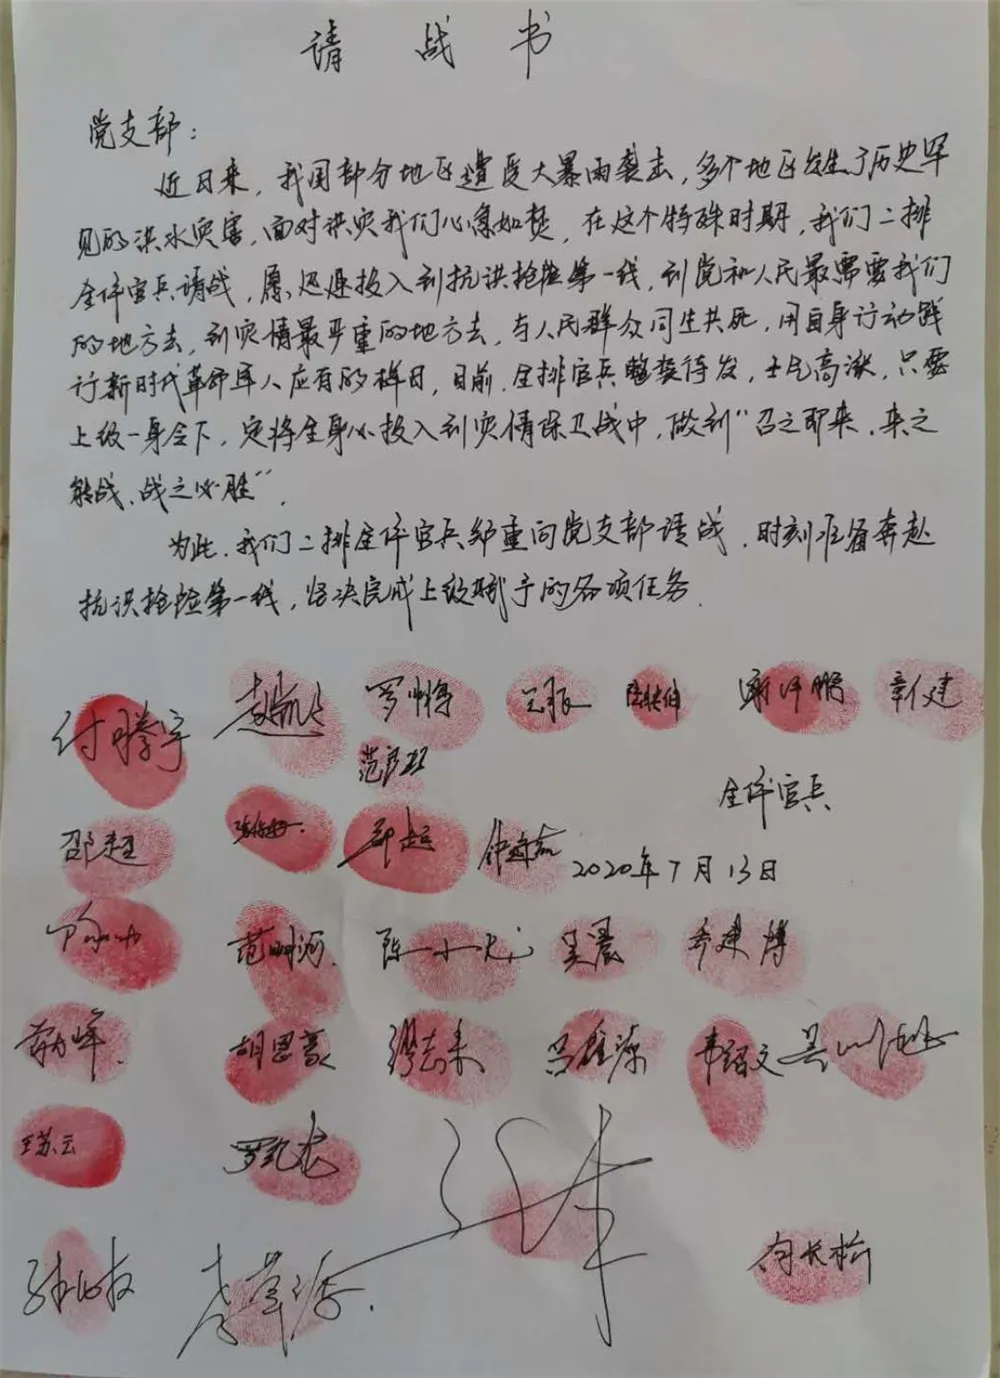 请战书
党支部：
近日来，我国部分地区遭受大暴雨袭击，多个地区发生了历史罕
见的洪水灾害，面对洪灾我们心急如焚，在这个特殊时期，我们二排
全体官兵请战，愿迅速投入到抗洪抢险第一线，到党和人民最需要我们
的地方去，到灾情最严重的地方去，与人民群众同生共死，用自身行动践
行新时代革命军人应有的样目，目前，全排官兵整装待发，士气高涨，只要
上级一身令下，定将全身心投入到灾情保卫战中，做到“召之即来、来之
能战、战之必胜”.
为此，我们二排全体官兵郑重向党支部请战，时刻准备奔赴
抗洪抢险第一线，坚决完成上级赋予的各项任务.
付腾宇 赵凯 章仁建
全体官兵
邵赵
2020年7月13日
陈小龙 吴震 乔建博
胡思豪 缪志来 吕雄源 韦绍文
王苏云
李苇添
向长桥